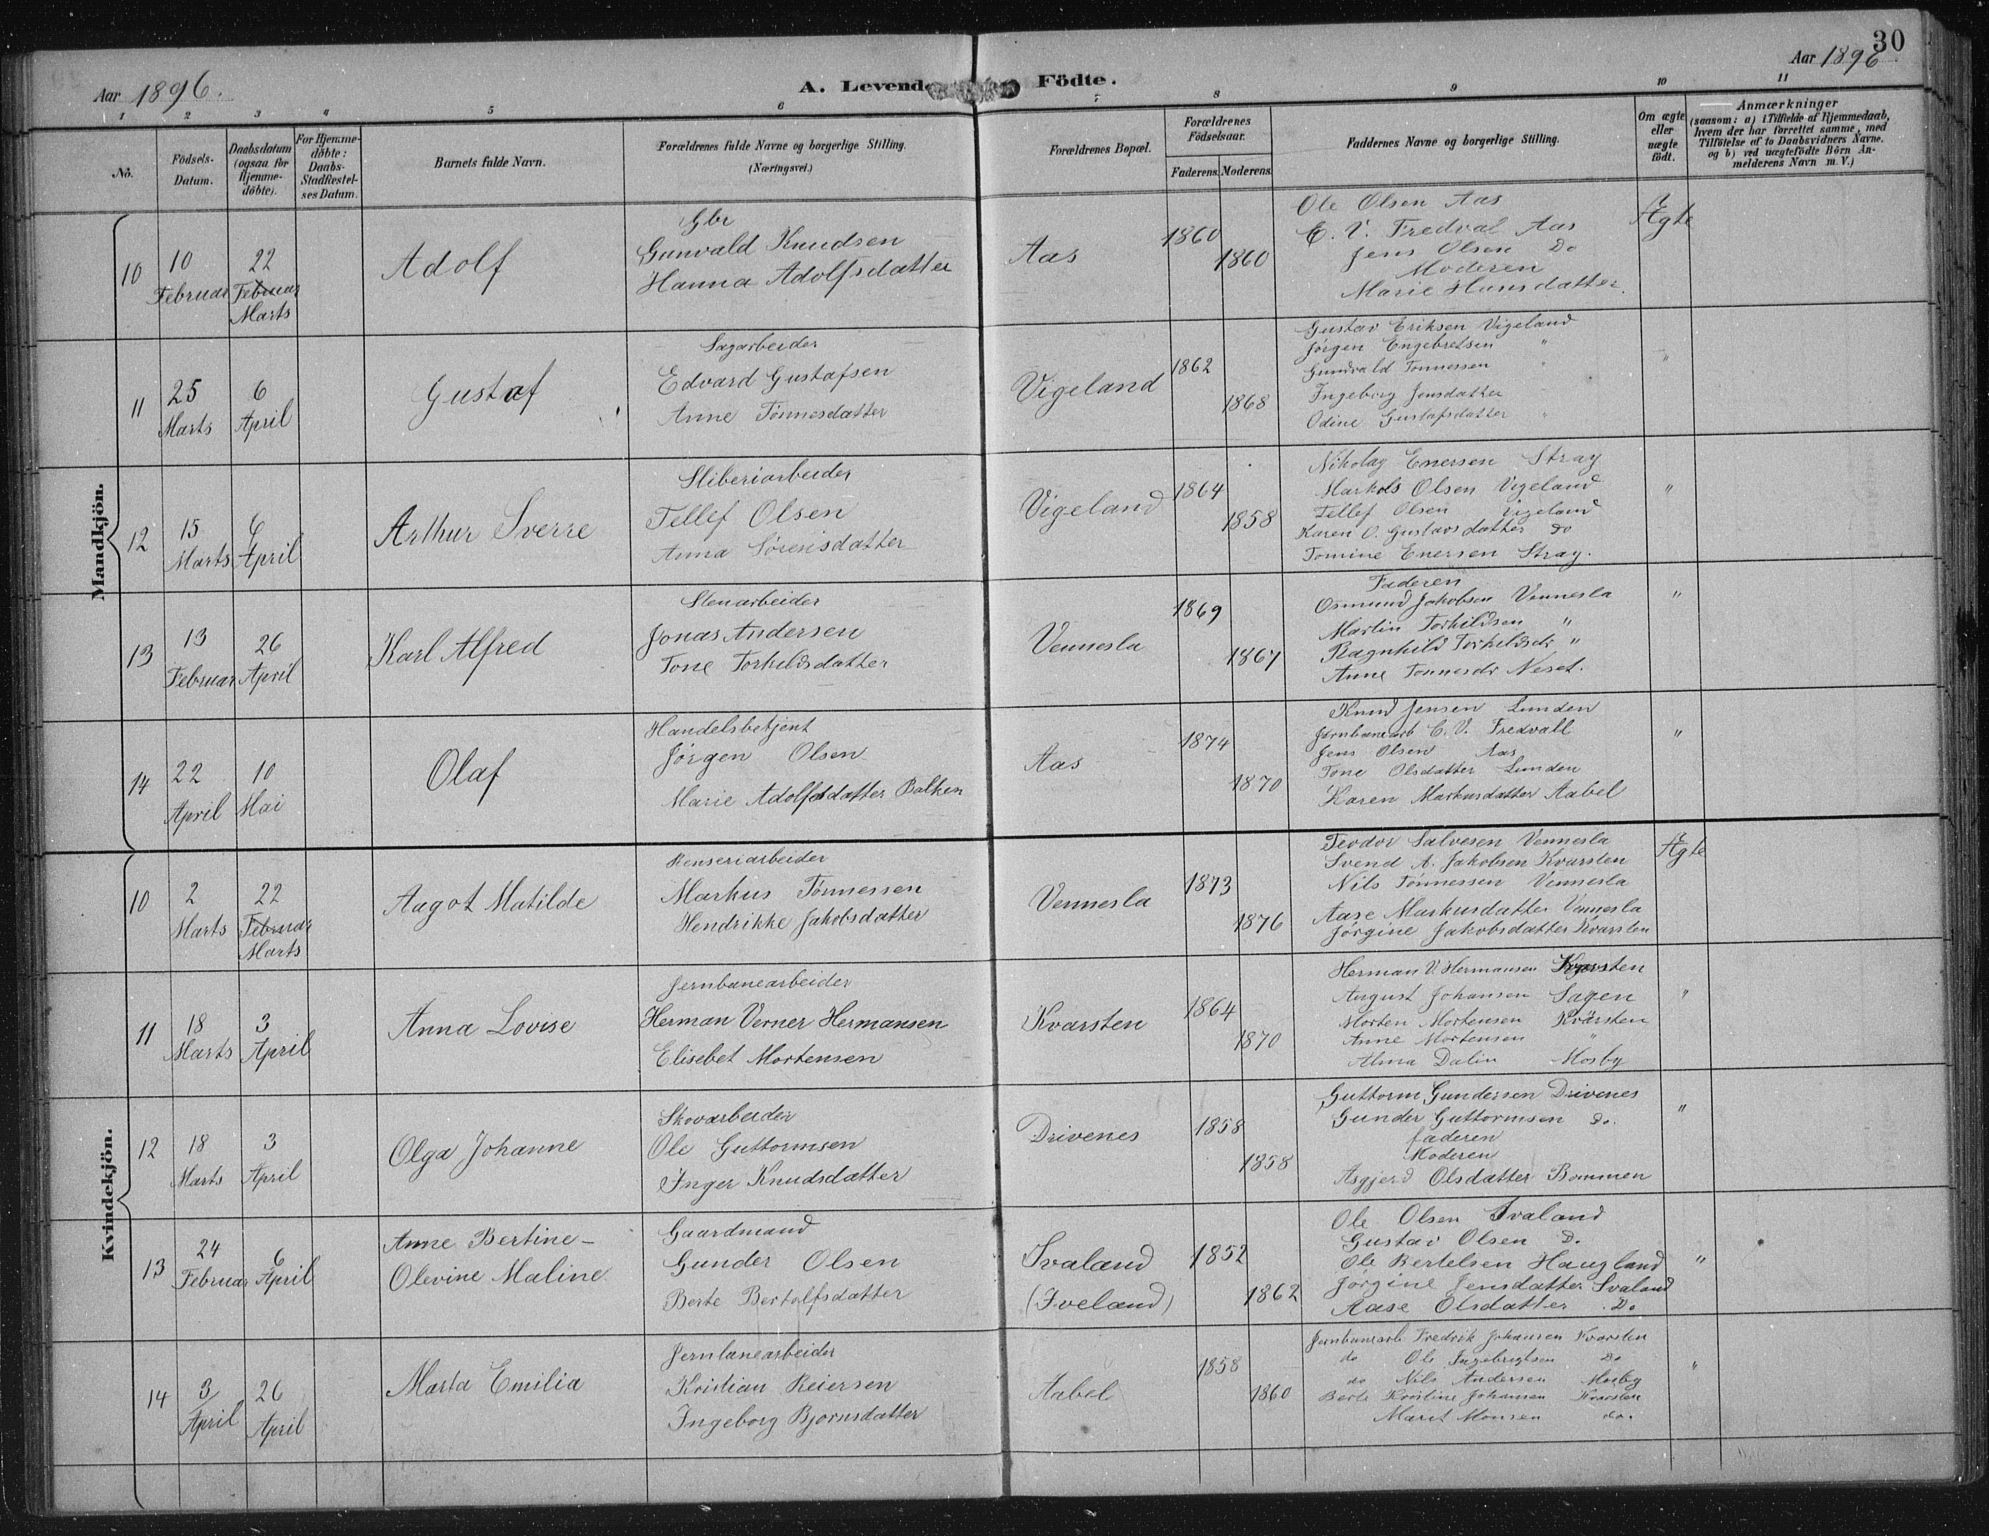 30
Aar 1896.
A. Levende Födte.
Aar 1896.
1 2 3 4 5 6 7 8 9 10 11
No.
Födsels-Datum.
Daabsdatum (ogsaa for Hjemme-döbte).
For Hjemme-döbte: Daabs-Stadfæstel-ses Datum.
Barnets fulde Navn.
Forældrenes fulde Navne og borgerlige Stilling.
(Næringsvei.)
Forældrenes Bopæl.
Forældrenes Födselsaar.
Faderens. Moderens.
Faddernes Navne og borgerlige Stilling.
Om ægte eller uægte födt.
Anmærkninger
(saasom: a) i Tilfælde af Hjemmedaab, hvem der har forrettet samme, med Tilföielse af to Daabsvidners Navne. og b) ved uægtefödte Börn Anmelderens Navn m. V.)
Mandkjön.
10
10 Februar
22 Februar Marts
Adolf
Gbr
Gunvald Knudsen
Hanna Adolfsdatter
Aas
1860
1860
Ole Olsen Aas
E. V. Fredval Aas
Jens Olsen Do
Moderen
Marie Hansdatter.
Ægte
11
25 Marts
6 April
Gustaf
Sagarbeider
Edvard Gustafsen
Anne Tönnesdatter
Vigeland
1862
1868
Gustav Eriksen Vigeland
Jørgen Engebretsen "
Gundvald Tönnessen "
Ingeborg Jensdatter
Odine Gustafsdatter "
"
12
15 Marts
6 April
Arthur Sverre
Sliberiarbeider
Tellef Olsen
Anna Sörensdatter
Vigeland
1864
1858
Nikolay Enersen Stray
Markus Olsen Vigeland
Tellef Olsen Vigeland
Karen O. Gustavsdatter Do
Tomine Enersen Stray.
"
13
13 Februar
26 April
Karl Alfred
Stenarbeider
Jonas Andersen
Tone Torkildsdatter
Vennesla
1869
1867
Faderen
Osmund Jakobsen Vennesla
Martin Torkildsen "
Ragnhild Torkildsdr "
Anne Tonnesdr Neset.
"
14
22 April
10 Mai
Olaf
Handelsbetjent
Jørgen Olsen
Marie Adolfsdatter Balken
Aas
1874
1870
Knud Jensen Lunden
Jernbanearb E. V. Fredvall
Jens Olsen Aas
Tone Olsdatter Lunden
Karen Markusdatter Aabel
"
Kvindekjön.
10
2 Marts
22 Februar Marts
Aagot Matilde
Renseriarbeider
Markus Tönnessen
Hendrikke Jakobsdatter
Vennesla
1873
1876
Teodor Salvesen Vennesla
Svend A. Jakobsen Kvarsten
Nils Tönnessen Vennesla
Aase Markusdatter Vennesla
Jørgine Jakobsdatter Kvarsten
Ægte
11
18 Marts
3 April
Anna Lovise
Jernbanearbeider
Herman Verner Hermansen
Elisebet Mortensen
Kvarsten
1864
1870
Herman V. Hermansen Kvarsten
August Johansen Sagen
Morten Mortensen Kvarsten
Anne Mortensen "
Alma Dalin Mosby
"
12
18 Marts
3 April
Olga Johanne
Skovarbeider
Ole Guttormsen
Inger Knudsdatter
Drivenes
1858
1858
Guttorm Gundersen Drivenes
Gunder Guttormsen Do.
faderen
Moderen
Asgjerd Olsdatter Bommen
"
13
24 Februar
6 April
Anne Bertine-
Olevine Maline
Gaardmand
Gunder Olsen
Berte Bertolfsdatter
Svaland
(Iveland)
1852
1862
Ole Olsen Svaland
Gustav Olsen Do
Ole Bertelsen Haugland
Jørgine Jensdatter Svaland
Aase Olsdatter Do
"
14
3 April
26 April
Marta Emilia
Jernbanearbeider
Kristian Reiersen
Ingeborg Bjornsdatter
Aabel
1858
1860
Jernbanearb Fredrik Johansen Kvarsten
do Ole Ingebrigtsen Do
do Nils Andersen Mosby
Berte Kristine Johansen Kvarsten
Marit Monsen do.
"